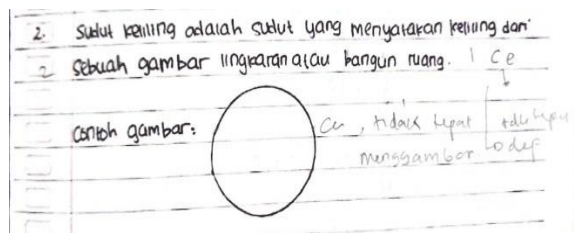 2. Sudut keliling adalah sudut yang menyatakan keliling dari
2 sebuah gambar lingkaran atau bangun ruang. 1 Ce
contoh gambar: Ce, tidak tepat
menggambar